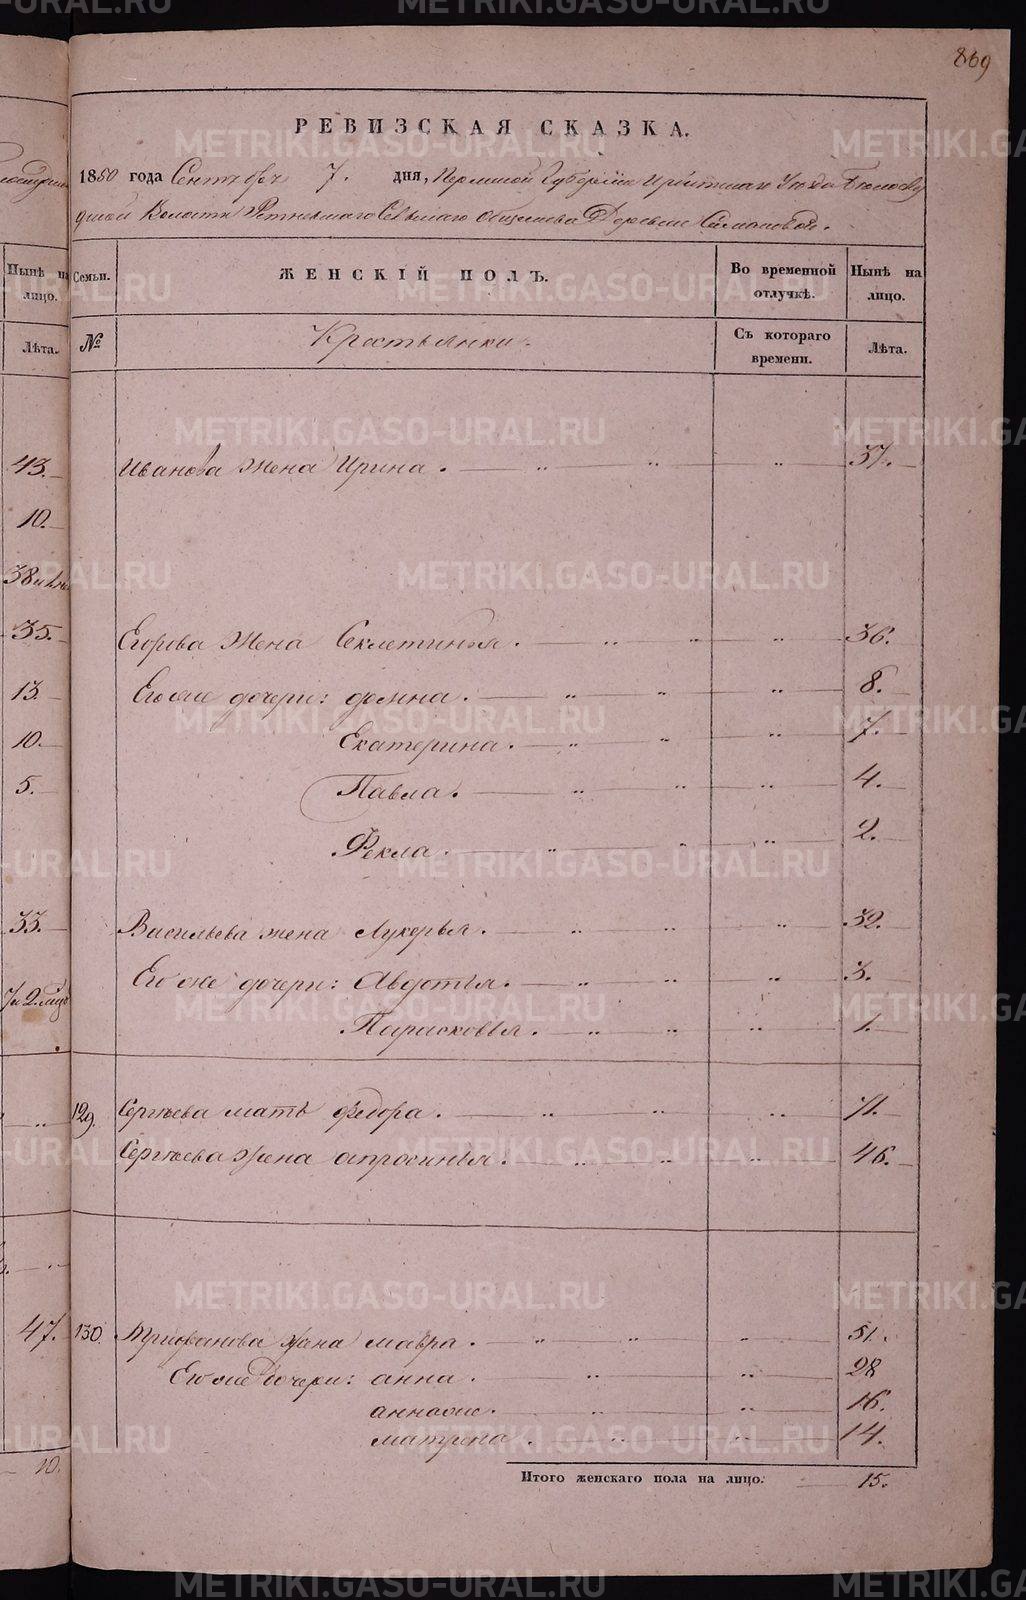 869
РЕВИЗСКАЯ СКАЗКА.
1850 года Сентября 7. дня, Пермской Губернiи Ирбитскаго Уезда Белослу
дской Волости Ретневскаго Сельскаго общества Деревни Симановой.
Ныне на лицо.
Семьи.
ЖЕНСКIЙ ПОЛЪ.
Во временной отлучкѣ.
Нынѣ на лицо.
Лѣта.
№
Крестьянки.
Съ котораго времени.
Лѣта.
43.
Иванова жена Ирина. 37.
10.
38
35.
Егорова жена Секлетинья. 36.
13.
Его же дочери: домна. 8.
10.
Екатерина. 7.
5.
Павла. 4.
Фекла. 2.
33.
Васильева жена Лукерья. 32.
Его же дочери: Авдотья. 3.
Парасковья. 1.
129. Сергѣева мать федора. 71.
Сергѣева жена апросинья. 46.
47.
130. Трифанова жена мавра. 51.
Его же дочери: анна. 28
аннаже. 16.
матрена. 14.
10.
Итого женскаго пола на лицо. 15.
METRIKI.GASO-URAL.RU